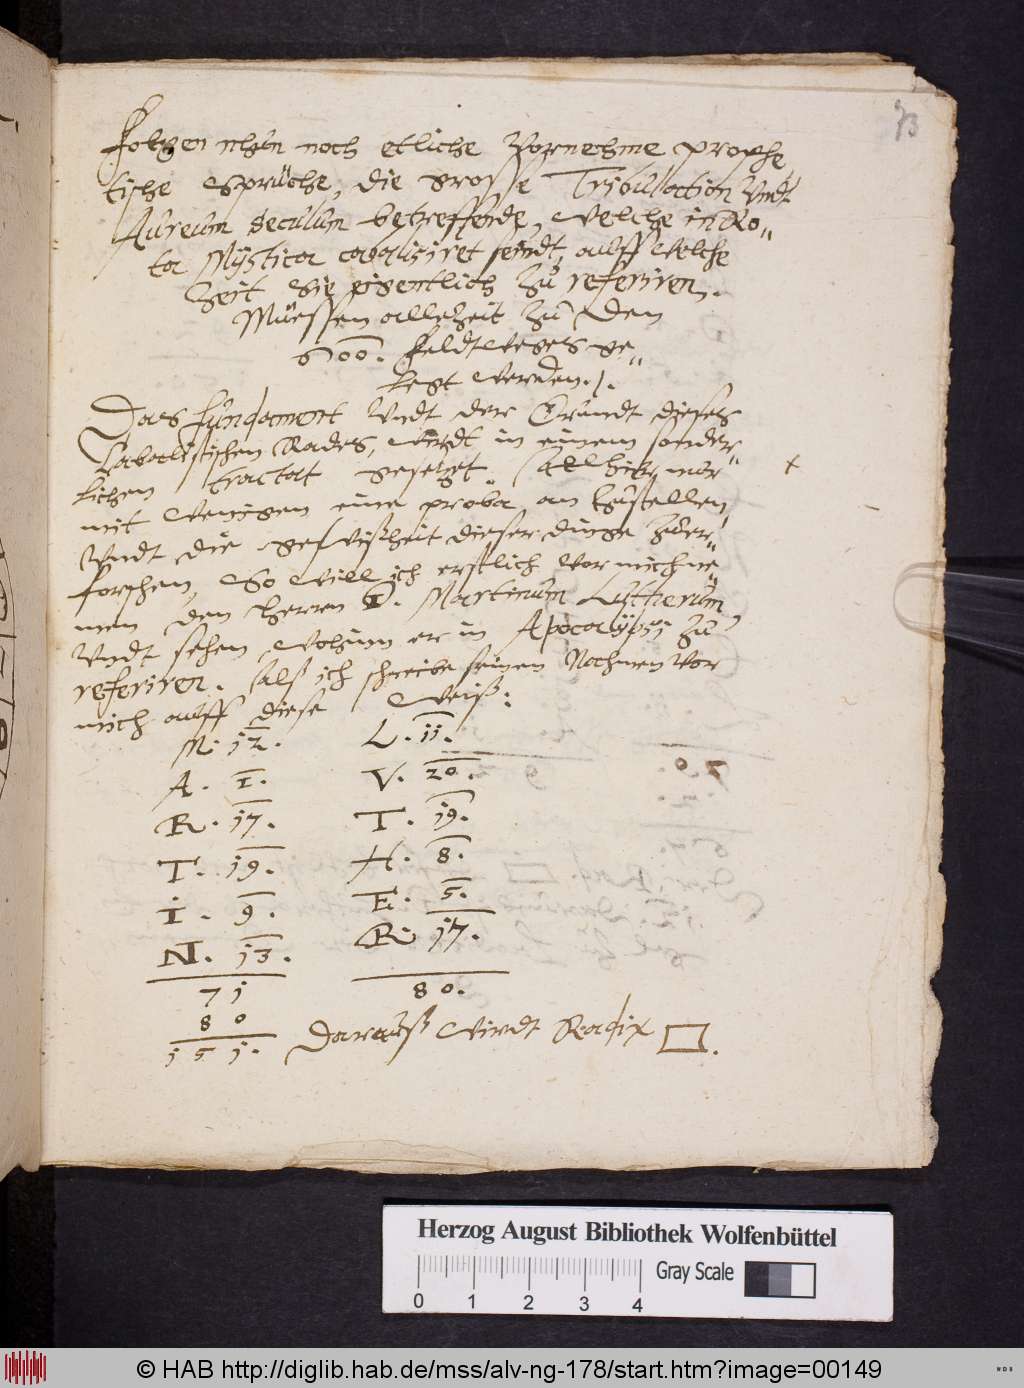 73
Folgen nuhn noch etliche Vornehme prophe
tische Sprüche, die grosse Tribulation Undt
Aureum Seculum betreffende, welche in Ro„
ta Mystica cabalisiret seindt, auff welche
Zeit sie eigentlich zu referiren.
Müessen allezeit zu den
600. Feldtweges ge„
legt werden.
Das Fundament Undt der Grundt dieses
Cabalistischen Rades, wirdt in einem sonder„
lichen tractat gesetzet. Allhier nur
mit wenigen eine proba an zustellen
Undt die gewißheit dieser dinge zuer„
forschen, So will ich erstlich vor mich ne„
men den Herren D. Martinum Lutherum
Undt sehen wohin er in Apocalypsi zu
referiren. Als ich schreibe seinen Nahmen vor
mich auff diese weiß:
M. 12. L. 11.
A. 1. V. 20.
R. 17. T. 19.
T. 19. H. 8.
I. 9. E. 5.
N. 13. R. 17.
71 80.
80
151. Darauß wirdt Radix □.
Herzog August Bibliothek Wolfenbüttel
Gray Scale
0 1 2 3 4
© HAB http://diglib.hab.de/mss/alv-ng-178/start.htm?image=00149